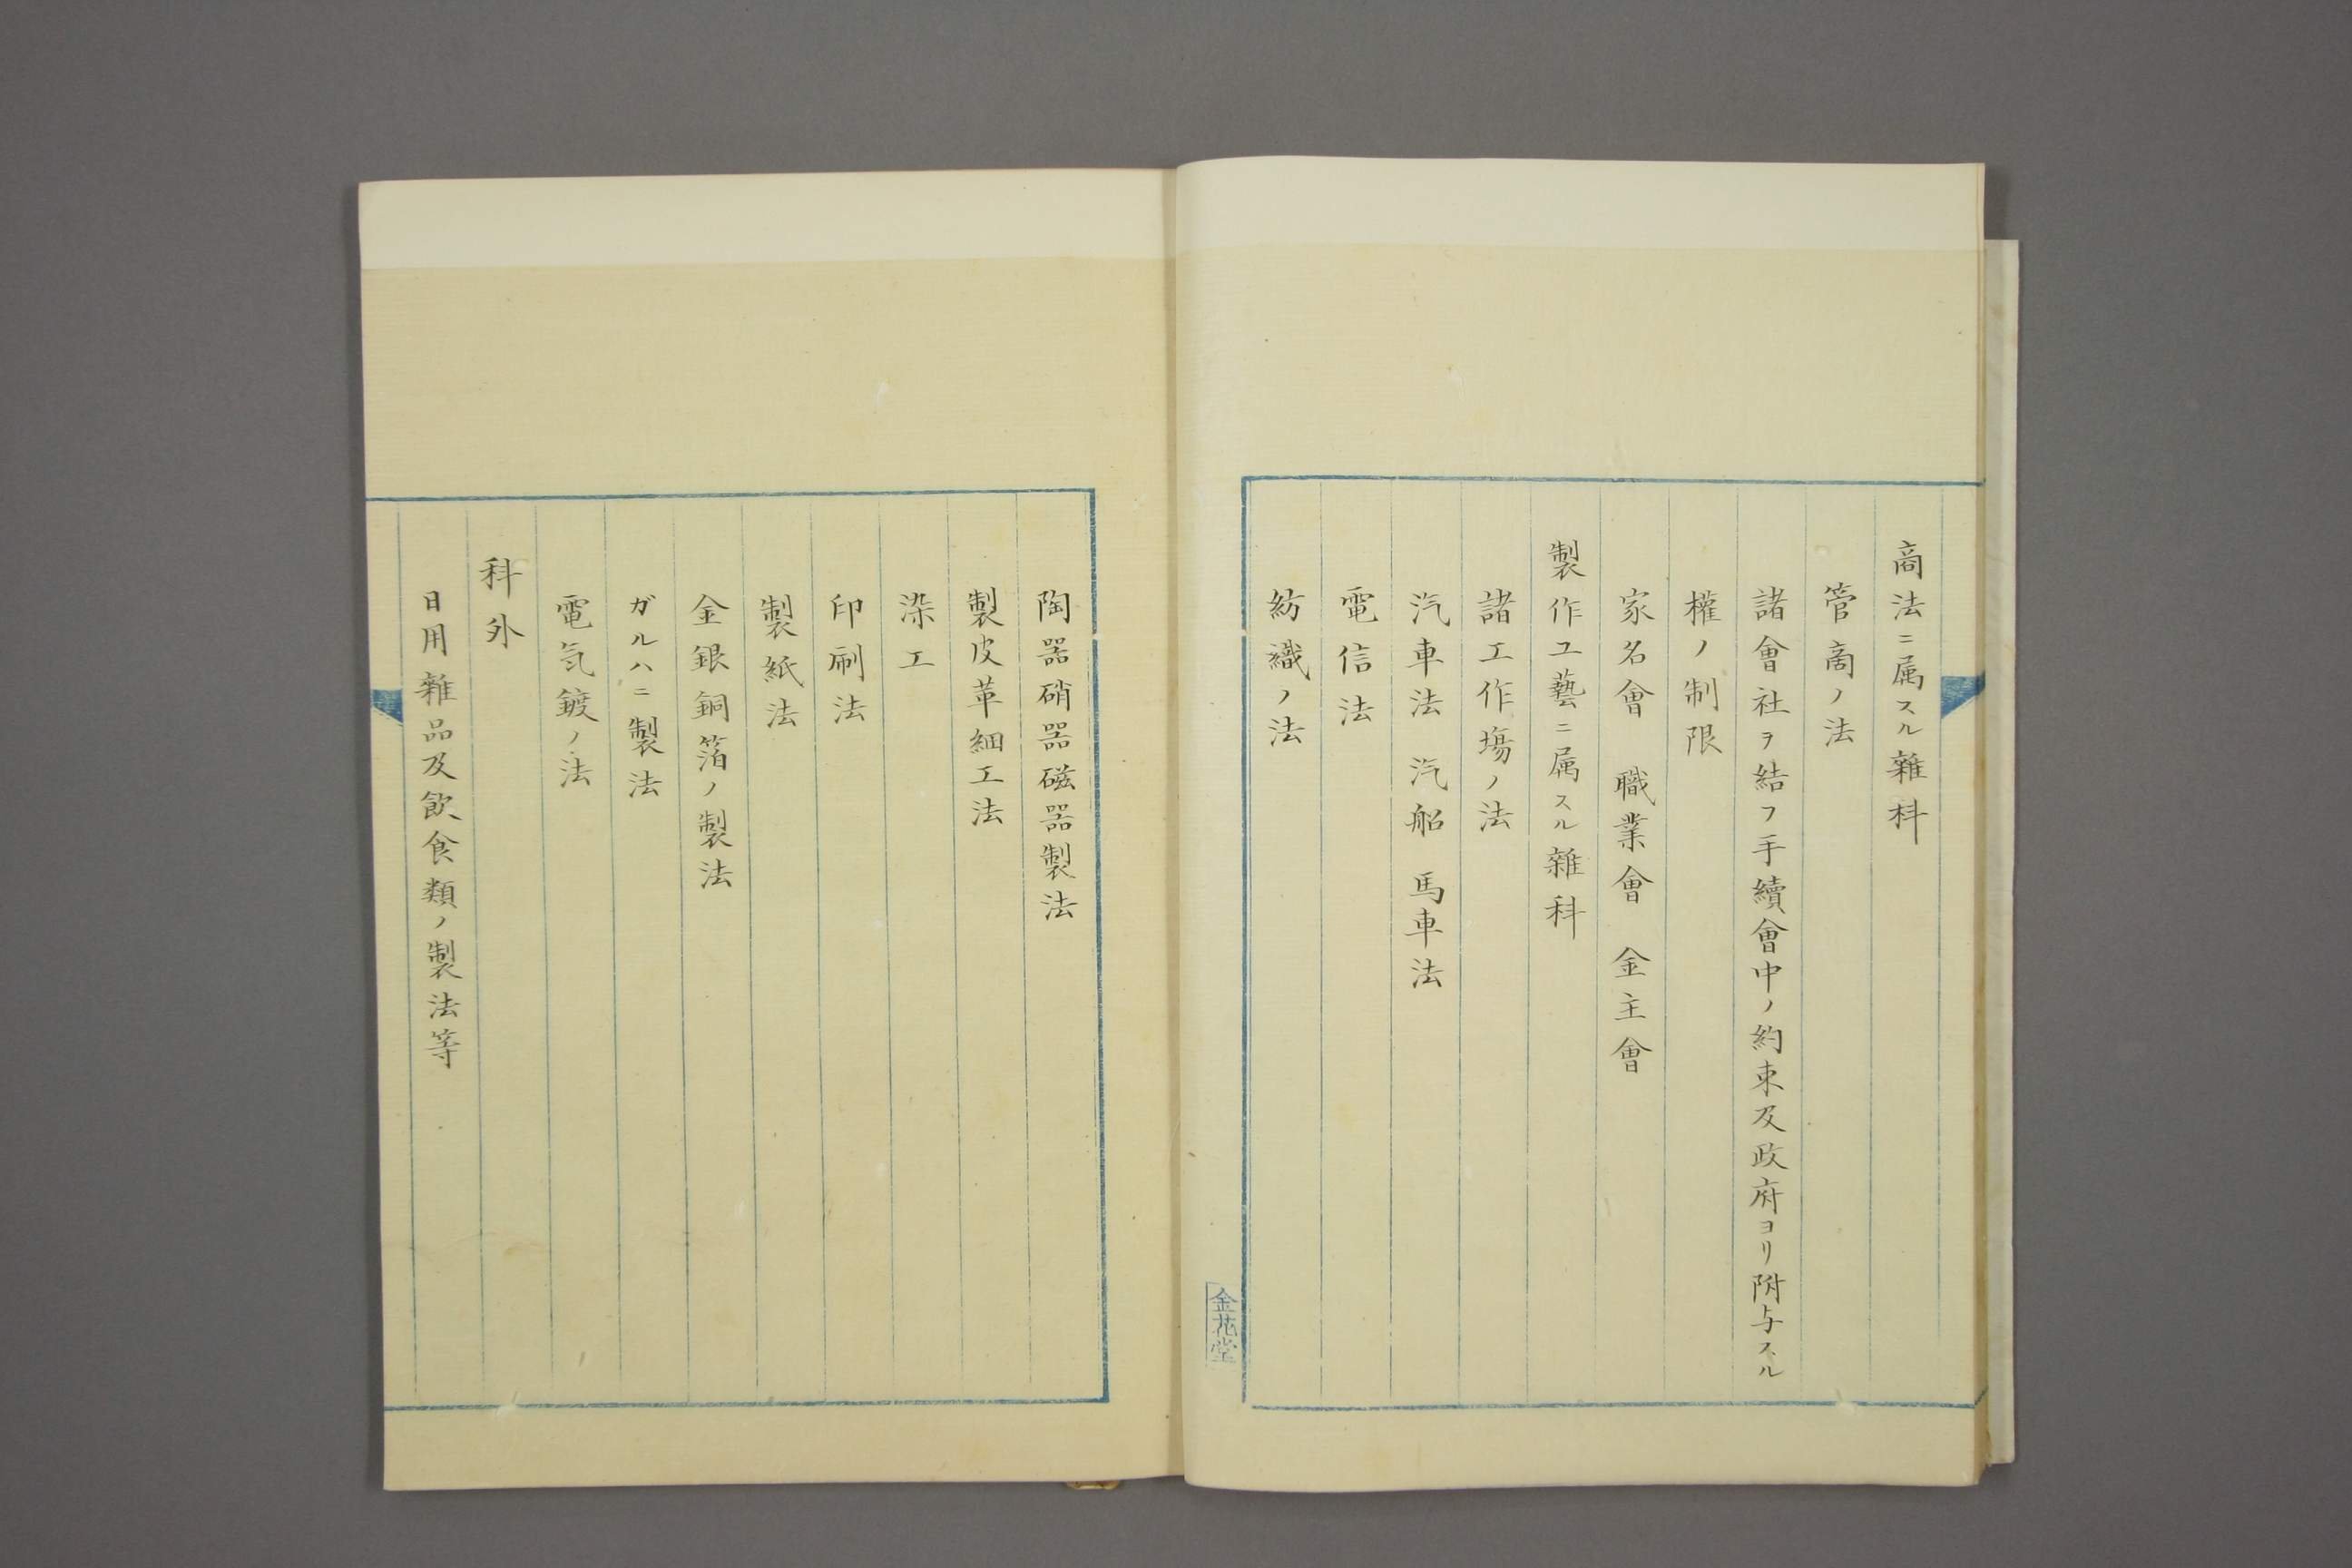 商法ニ属スル雜科
管商ノ法
諸會社ヲ結フ手續會中ノ約束及政府ヨリ附与スル
權ノ制限
家名會　職業會　金主會
製作工藝ニ属スル雜科
諸工作塲ノ法
汽車法　汽船　馬車法
電信法
紡織ノ法
金花堂
陶器硝器磁器製法
製皮革細工法
染工
印刷法
製紙法
金銀銅箔ノ製法
ガルハニ製法
電気鍍ノ法
科外
日用雜品及飲食類ノ製法等